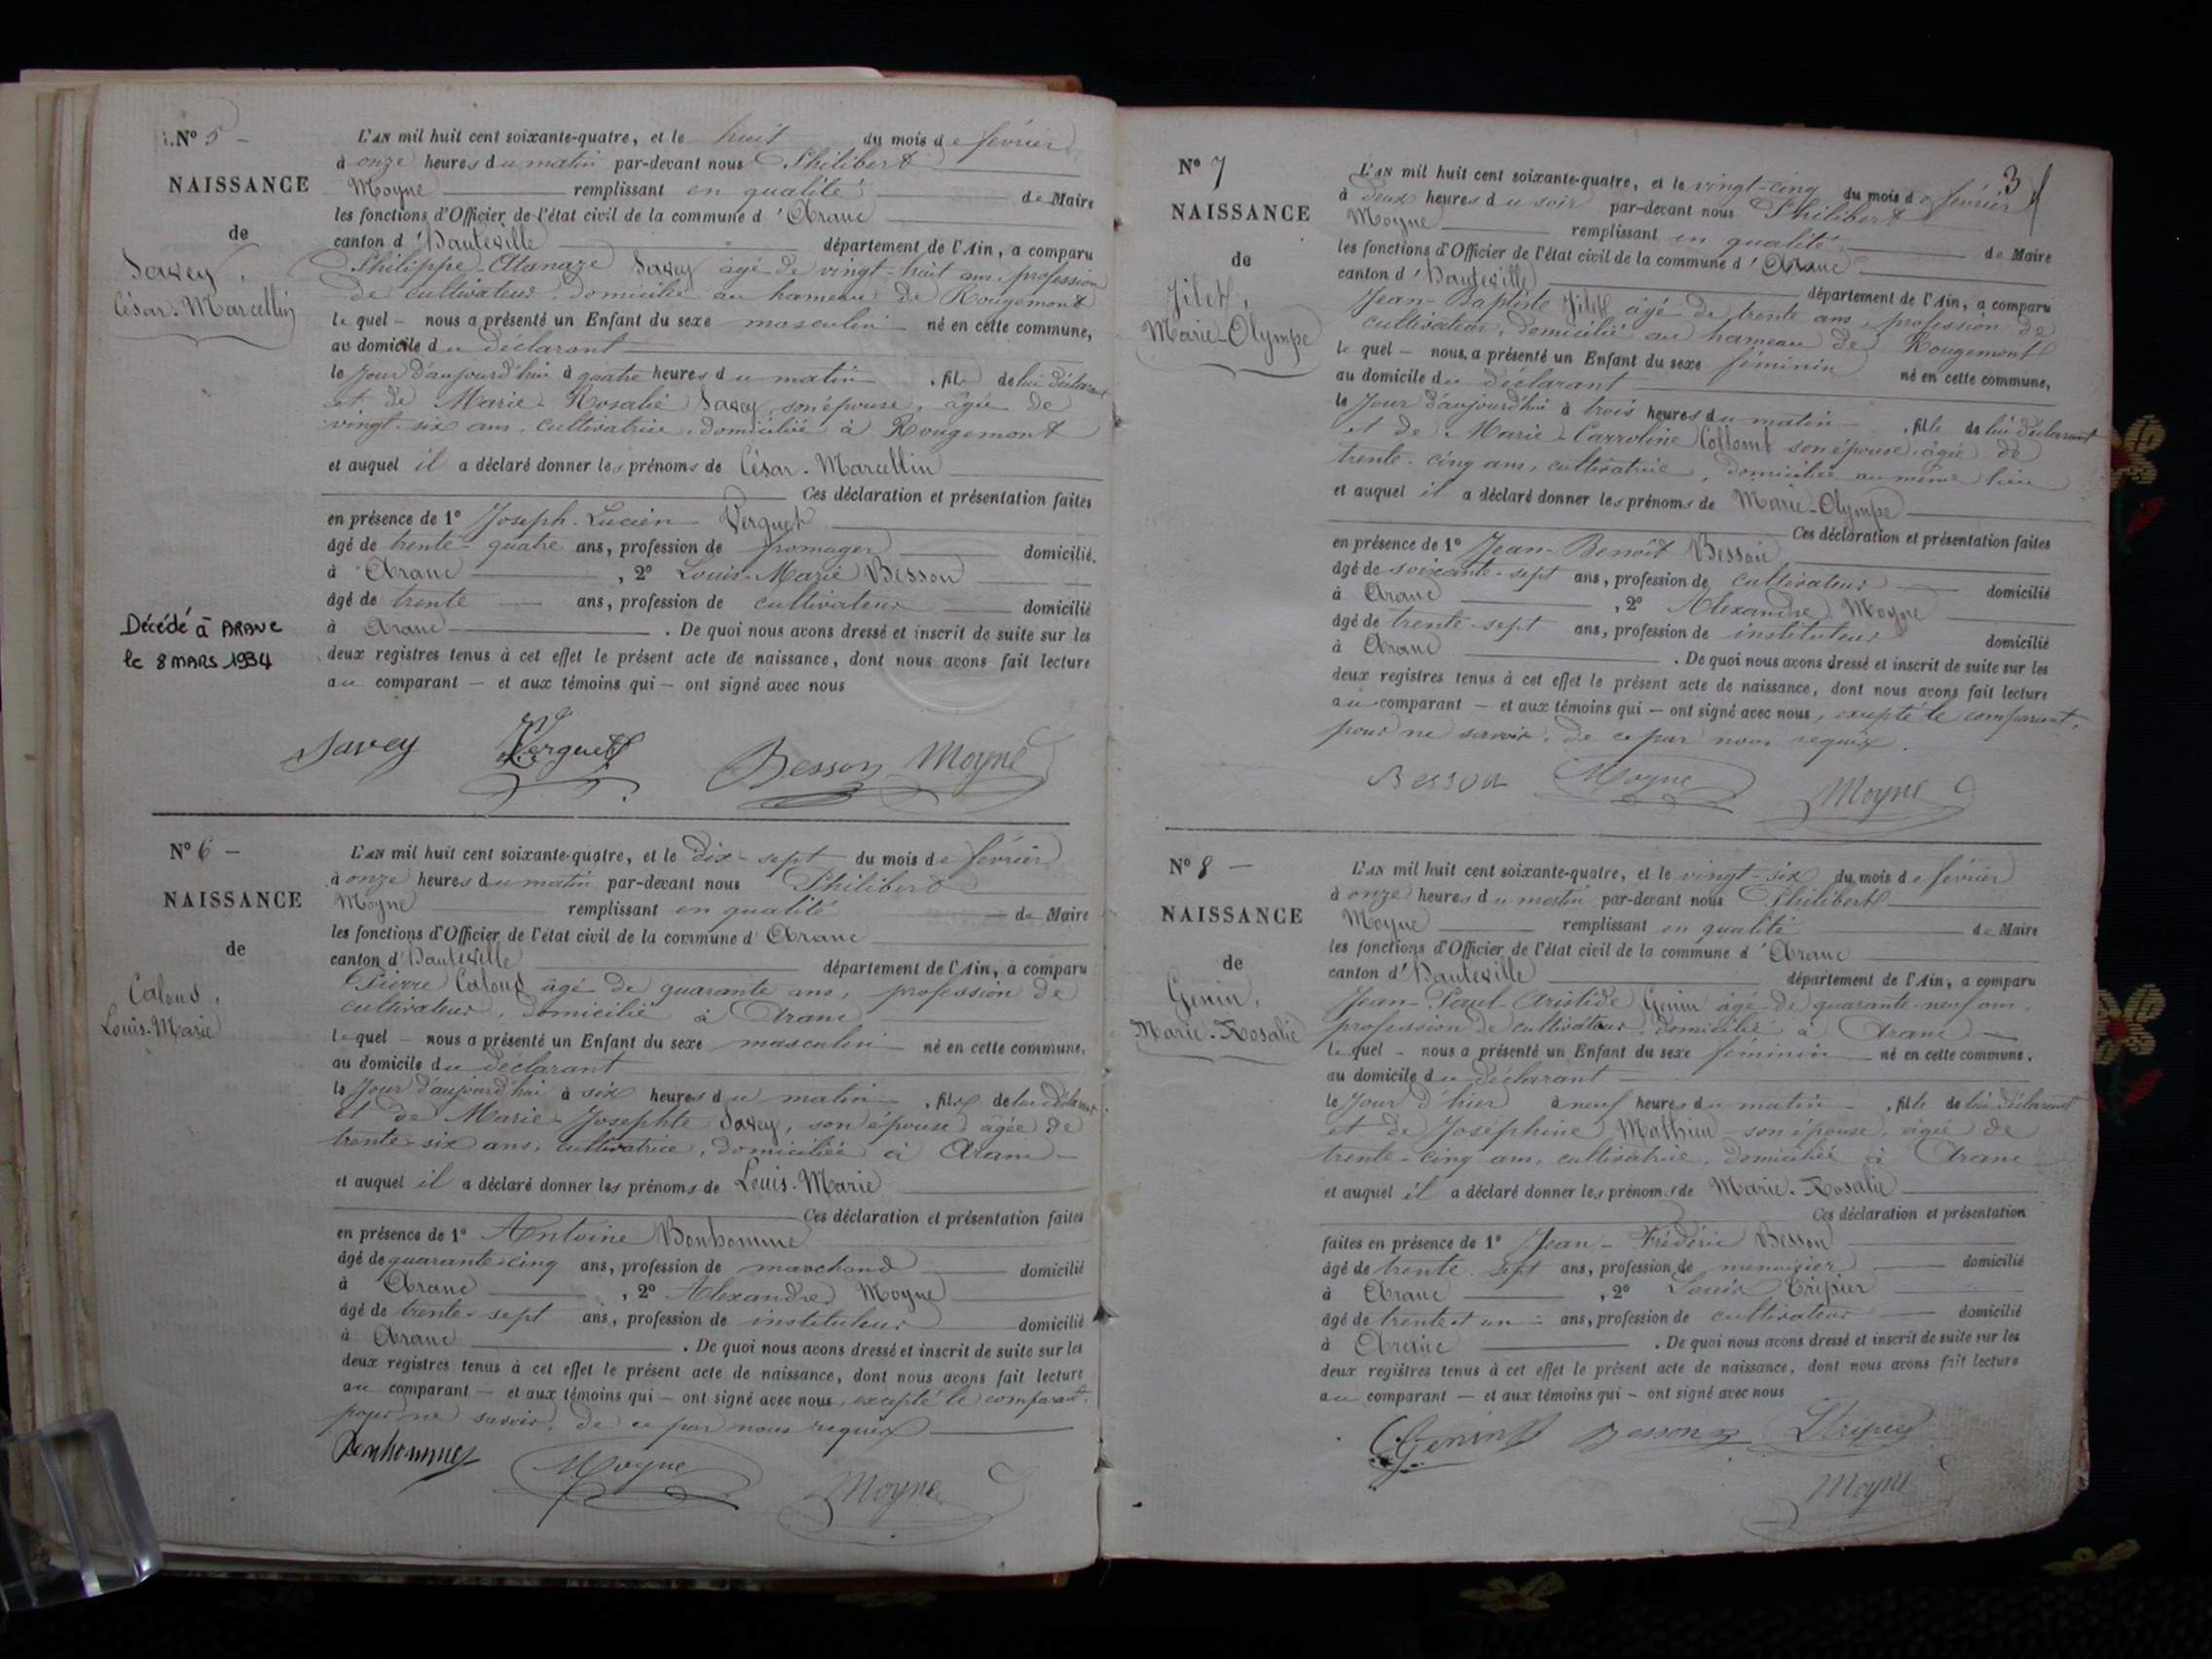 N° 5 -
NAISSANCE
de
Savey,
César-Marcellin
Décédé à ARANC
le 8 MARS 1934
L'AN mil huit cent soixante-quatre, et le huit du mois de février
à onze heures du matin par-devant nous Philibert
Moyne remplissant en qualité de Maire
les fonctions d'Officier de l'état civil de la commune d'Aranc
canton d'Hauteville département de l'Ain, a comparu
Philippe-Atanaze Savey âgé de vingt-huit ans, profession
de cultivateur, domicilié au hameau de Rougemont
lequel - nous a présenté un Enfant du sexe masculin né en cette commune,
au domicile du déclarant
le jour d'aujourd'hui à quatre heures du matin, fils de lui déclarant
et de Marie-Rosalie Savey, son épouse, âgée de
vingt-six ans, cultivatrice, domiciliée à Rougemont
et auquel il a déclaré donner les prénoms de César-Marcellin
Ces déclaration et présentation faites
en présence de 1° Joseph-Lucien Verguet
âgé de trente-quatre ans, profession de fromager domicilié
à Aranc, 2° Louis-Marie Besson
âgé de trente ans, profession de cultivateur domicilié
à Aranc. De quoi nous avons dressé et inscrit de suite sur les
deux registres tenus à cet effet le présent acte de naissance, dont nous avons fait lecture
au comparant - et aux témoins qui - ont signé avec nous
Savey Verguet Besson Moyne
N° 6 -
NAISSANCE
de
Caloud,
Louis-Marie
L'AN mil huit cent soixante-quatre, et le dix-sept du mois de février
à onze heures du matin par-devant nous Philibert
Moyne remplissant en qualité de Maire
les fonctions d'Officier de l'état civil de la commune d'Aranc
canton d'Hauteville département de l'Ain, a comparu
Pierre Caloud âgé de quarante ans, profession de
cultivateur, domicilié à Aranc
lequel - nous a présenté un Enfant du sexe masculin né en cette commune,
au domicile du déclarant
le jour d'aujourd'hui à six heures du matin, fils de lui déclarant
et de Marie-Josephte Savey, son épouse âgée de
trente-six ans, cultivatrice, domiciliée à Aranc
et auquel il a déclaré donner les prénoms de Louis-Marie
Ces déclaration et présentation faites
en présence de 1° Antoine Bonhomme
âgé de quarante-cinq ans, profession de marchand domicilié
à Aranc, 2° Alexandre Moyne
âgé de trente-sept ans, profession de instituteur domicilié
à Aranc. De quoi nous avons dressé et inscrit de suite sur les
deux registres tenus à cet effet le présent acte de naissance, dont nous avons fait lecture
au comparant - et aux témoins qui - ont signé avec nous, excepté le comparant,
pour ne savoir, de ce par nous requis
Bonhomme Moyne Moyne
3
N° 7
NAISSANCE
de
Jilet,
Marie-Olympe
L'AN mil huit cent soixante-quatre, et le vingt-cinq du mois de février
à deux heures du soir par-devant nous Philibert
Moyne remplissant en qualité de Maire
les fonctions d'Officier de l'état civil de la commune d'Aranc
canton d'Hauteville département de l'Ain, a comparu
Jean-Baptiste Jilet âgé de trente ans, profession de
cultivateur, domicilié au hameau de Rougemont
lequel - nous a présenté un Enfant du sexe féminin né en cette commune,
au domicile du déclarant
le jour d'aujourd'hui à trois heures du matin, fille de lui déclarant
et de Marie-Carroline Collomb son épouse âgée de
trente-cinq ans, cultivatrice, domiciliée au même lieu
et auquel il a déclaré donner les prénoms de Marie-Olympe
Ces déclaration et présentation faites
en présence de 1° Jean-Benoît Besson
âgé de soixante-sept ans, profession de cultivateur domicilié
à Aranc, 2° Alexandre Moyne
âgé de trente-sept ans, profession de instituteur domicilié
à Aranc. De quoi nous avons dressé et inscrit de suite sur les
deux registres tenus à cet effet le présent acte de naissance, dont nous avons fait lecture
au comparant - et aux témoins qui - ont signé avec nous, excepté le comparant,
pour ne savoir, de ce par nous requis.
Besson Moyne Moyne
N° 8 -
NAISSANCE
de
Genin,
Marie-Rosalie
L'AN mil huit cent soixante-quatre, et le vingt-six du mois de février
à onze heures du matin par-devant nous Philibert
Moyne remplissant en qualité de Maire
les fonctions d'Officier de l'état civil de la commune d'Aranc
canton d'Hauteville département de l'Ain, a comparu
Jean-Paul-Aristide Genin âgé de quarante-neuf ans,
profession de cultivateur, domicilié à Aranc
lequel - nous a présenté un Enfant du sexe féminin né en cette commune,
au domicile du déclarant
le jour d'hier à neuf heures du matin, fille de lui déclarant
et de Joséphine Mathieu son épouse, âgée de
trente-cinq ans, cultivatrice, domiciliée à Aranc
et auquel il a déclaré donner les prénoms de Marie-Rosalie
Ces déclaration et présentation
faites en présence de 1° Jean-Frédéric Besson
âgé de trente-sept ans, profession de menuisier domicilié
à Aranc, 2° Louis Tripier
âgé de trente et un ans, profession de cultivateur domicilié
à Aranc. De quoi nous avons dressé et inscrit de suite sur les
deux registres tenus à cet effet le présent acte de naissance, dont nous avons fait lecture
au comparant - et aux témoins qui - ont signé avec nous
Genin Besson Tripier
Moyne